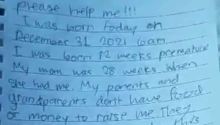 please help me!!!
I was born today on
December 31 2021 6am
I was born 12 weeks premature
My mom was 28 weeks when
she had me. My parents and
grandparents dont have food
or money to raise me They